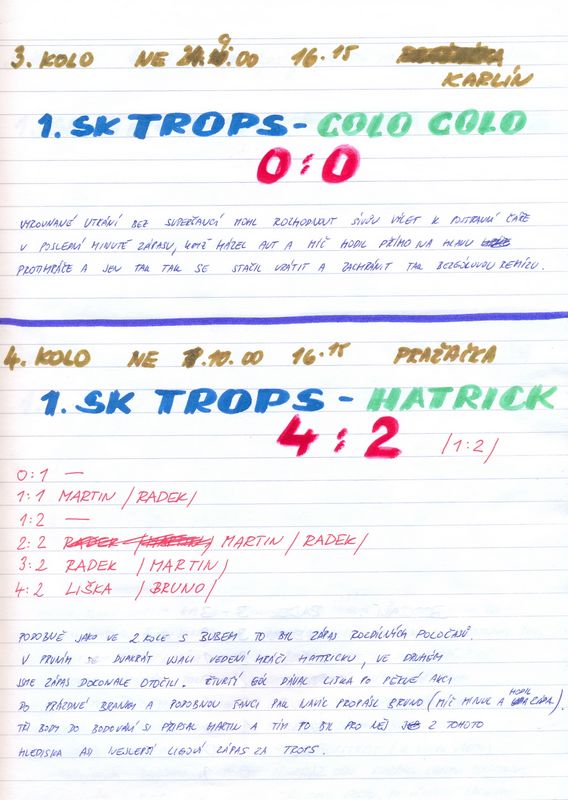 3. KOLO NE .00 16.15
KARLÍN
1. SK TROPS - GOLO GOLO
0:0
VYROVNANÉ UTKÁNÍ BEZ SUPERŠANCÍ MOHL ROZHODNOUT VÝLET K POSTRANNÍ ČÁŘE
V POSLEDNÍ MINUTĚ ZÁPASU, KDYŽ HÁZEL AUT A MÍČ HODIL PŘÍMO NA HLAVU
PROTIHRÁČE A JEN TAK TAK SE STAČIL VRÁTIT A ZACHRÁNIT TAK BEZGÓLOVOU REMÍZU.
4. KOLO NE 1.10.00 16.15 PRAŽAČKA
1. SK TROPS - HATRICK
4:2 /1:2/
0:1 —
1:1 MARTIN /RADEK/
1:2 —
2:2 MARTIN /RADEK/
3:2 RADEK /MARTIN/
4:2 LIŠKA /BRUNO/
PODOBNĚ JAKO VE 2.KOLE S BUBEM TO BYL ZÁPAS ROZDÍLNÝCH POLOČASŮ.
V PRVNÍM DVAKRÁT VZALI VEDENÍ HRÁČI HATTRICKU, VE DRUHÉM
JSME ZÁPAS DOKONALE OTOČILI. ČTVRTÝ GÓL DÁVAL LIŠKA PO PĚKNÉ AKCI
DO PRÁZDNÉ BRANKY A PODOBNOU ŠANCI PAK NAVÍC PROPÁSL BRUNO (MÍČ MINUL A HODIL ZÁDA).
TŘI BODY DO BODOVÁNÍ SI PŘIPSAL MARTIN A TÍM TO BYL PRO NĚJ Z TOHOTO
HLEDISKA ASI NEJLEPŠÍ LIGOVÝ ZÁPAS ZA TROPS.